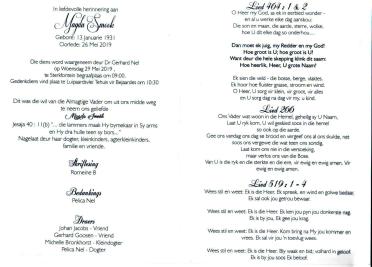 In liefdevolle herinnering aan
Magda Smook
Gebore: 13 Januarie 1931
Oorlede: 26 Mei 2019
Die diens word waargeneem deur Dr Gerhard Nel
op Woensdag 29 Mei 2019 ,
te Sterkfontein begraafplaas om 09:00.
Gedenkdiens vind plaas te Luipaardsvlei Tehuis vir Bejaardes om 10:30
Dit was die wil van die Almagtige Vader om uit ons midde weg
te neem ons geliefde
Magda Smook
Jesaja 40 : 11(b) "... die lammers maak Hy bymekaar in Sy arms
en Hy dra hulle teen sy bors..."
Nagelaat deur haar dogter, kleinkinders, agterkleinkinders,
familie en vriende.
Skriflesing
Romeine 8
Bedankings
Pelica Nel
Draers
Johan Jacobs - Vriend
Gerhard Goosen - Vriend
Michelle Bronkhorst - Kleindogter
Pelica Nel - Dogter
Lied 464 : 1 & 2
O Heer my God, as ek in eerbied wonder -
en al u werke elke dag aanskou:
Die son en maan, die aarde, sterre, wolke,
hoe U dit elke dag so onderhou...
Dan moet ek juig, my Redder en my God!
Hoe groot is U; hoe groot is U!
Want deur die hele skepping klink dit saam:
Hoe heerlik, Heer, U grote Naam!
Ek sien die veld - die bosse, berge, vlaktes.
Ek hoor hoe fluister grasse, stroom en wind.
O Heer, U sorg vir klein, vir groot, vir alles
en U sorg dag na dag vir my, u kind.
Lied 266
Ons Vader wat woon in die Hemel, geheilig sy U Naam,
Laat U ryk kom, U wil geskied toos in die hemel
so ook op die aarde.
Gee ons vandag ons dag se brood en vergeef ons al ons skulde, net
soos ons vergewe die wat teen ons sondig.
Laat kom ons nie in die versoeking,
maar verlos ons van die Bose.
Van U is die ryk en die sterkte en die eer, vir ewig en ewig amen. Vir
ewig en ewig amen.
Lied 519 : 1 - 4
Wees stil en weet: Ek is die Heer. Ek spreek, en wind en golwe bedaar.
Ek sal ook jou getrou bewaar.
Wees stil en weet: Ek is die Heer. Ek ken jou pyn jou donkerste nag.
Ek is by jou, Ek gee jou krag.
Wees stil en weet: Ek is die Heer. Kom bring na My jou kommer en
smart. Ek sal vir jou 'n toevlug wees.
Wees stil en weet: Ek is die Heer. Bly waak en bid; volhard in geloof.
Ek is by jou soos Ek beloof.